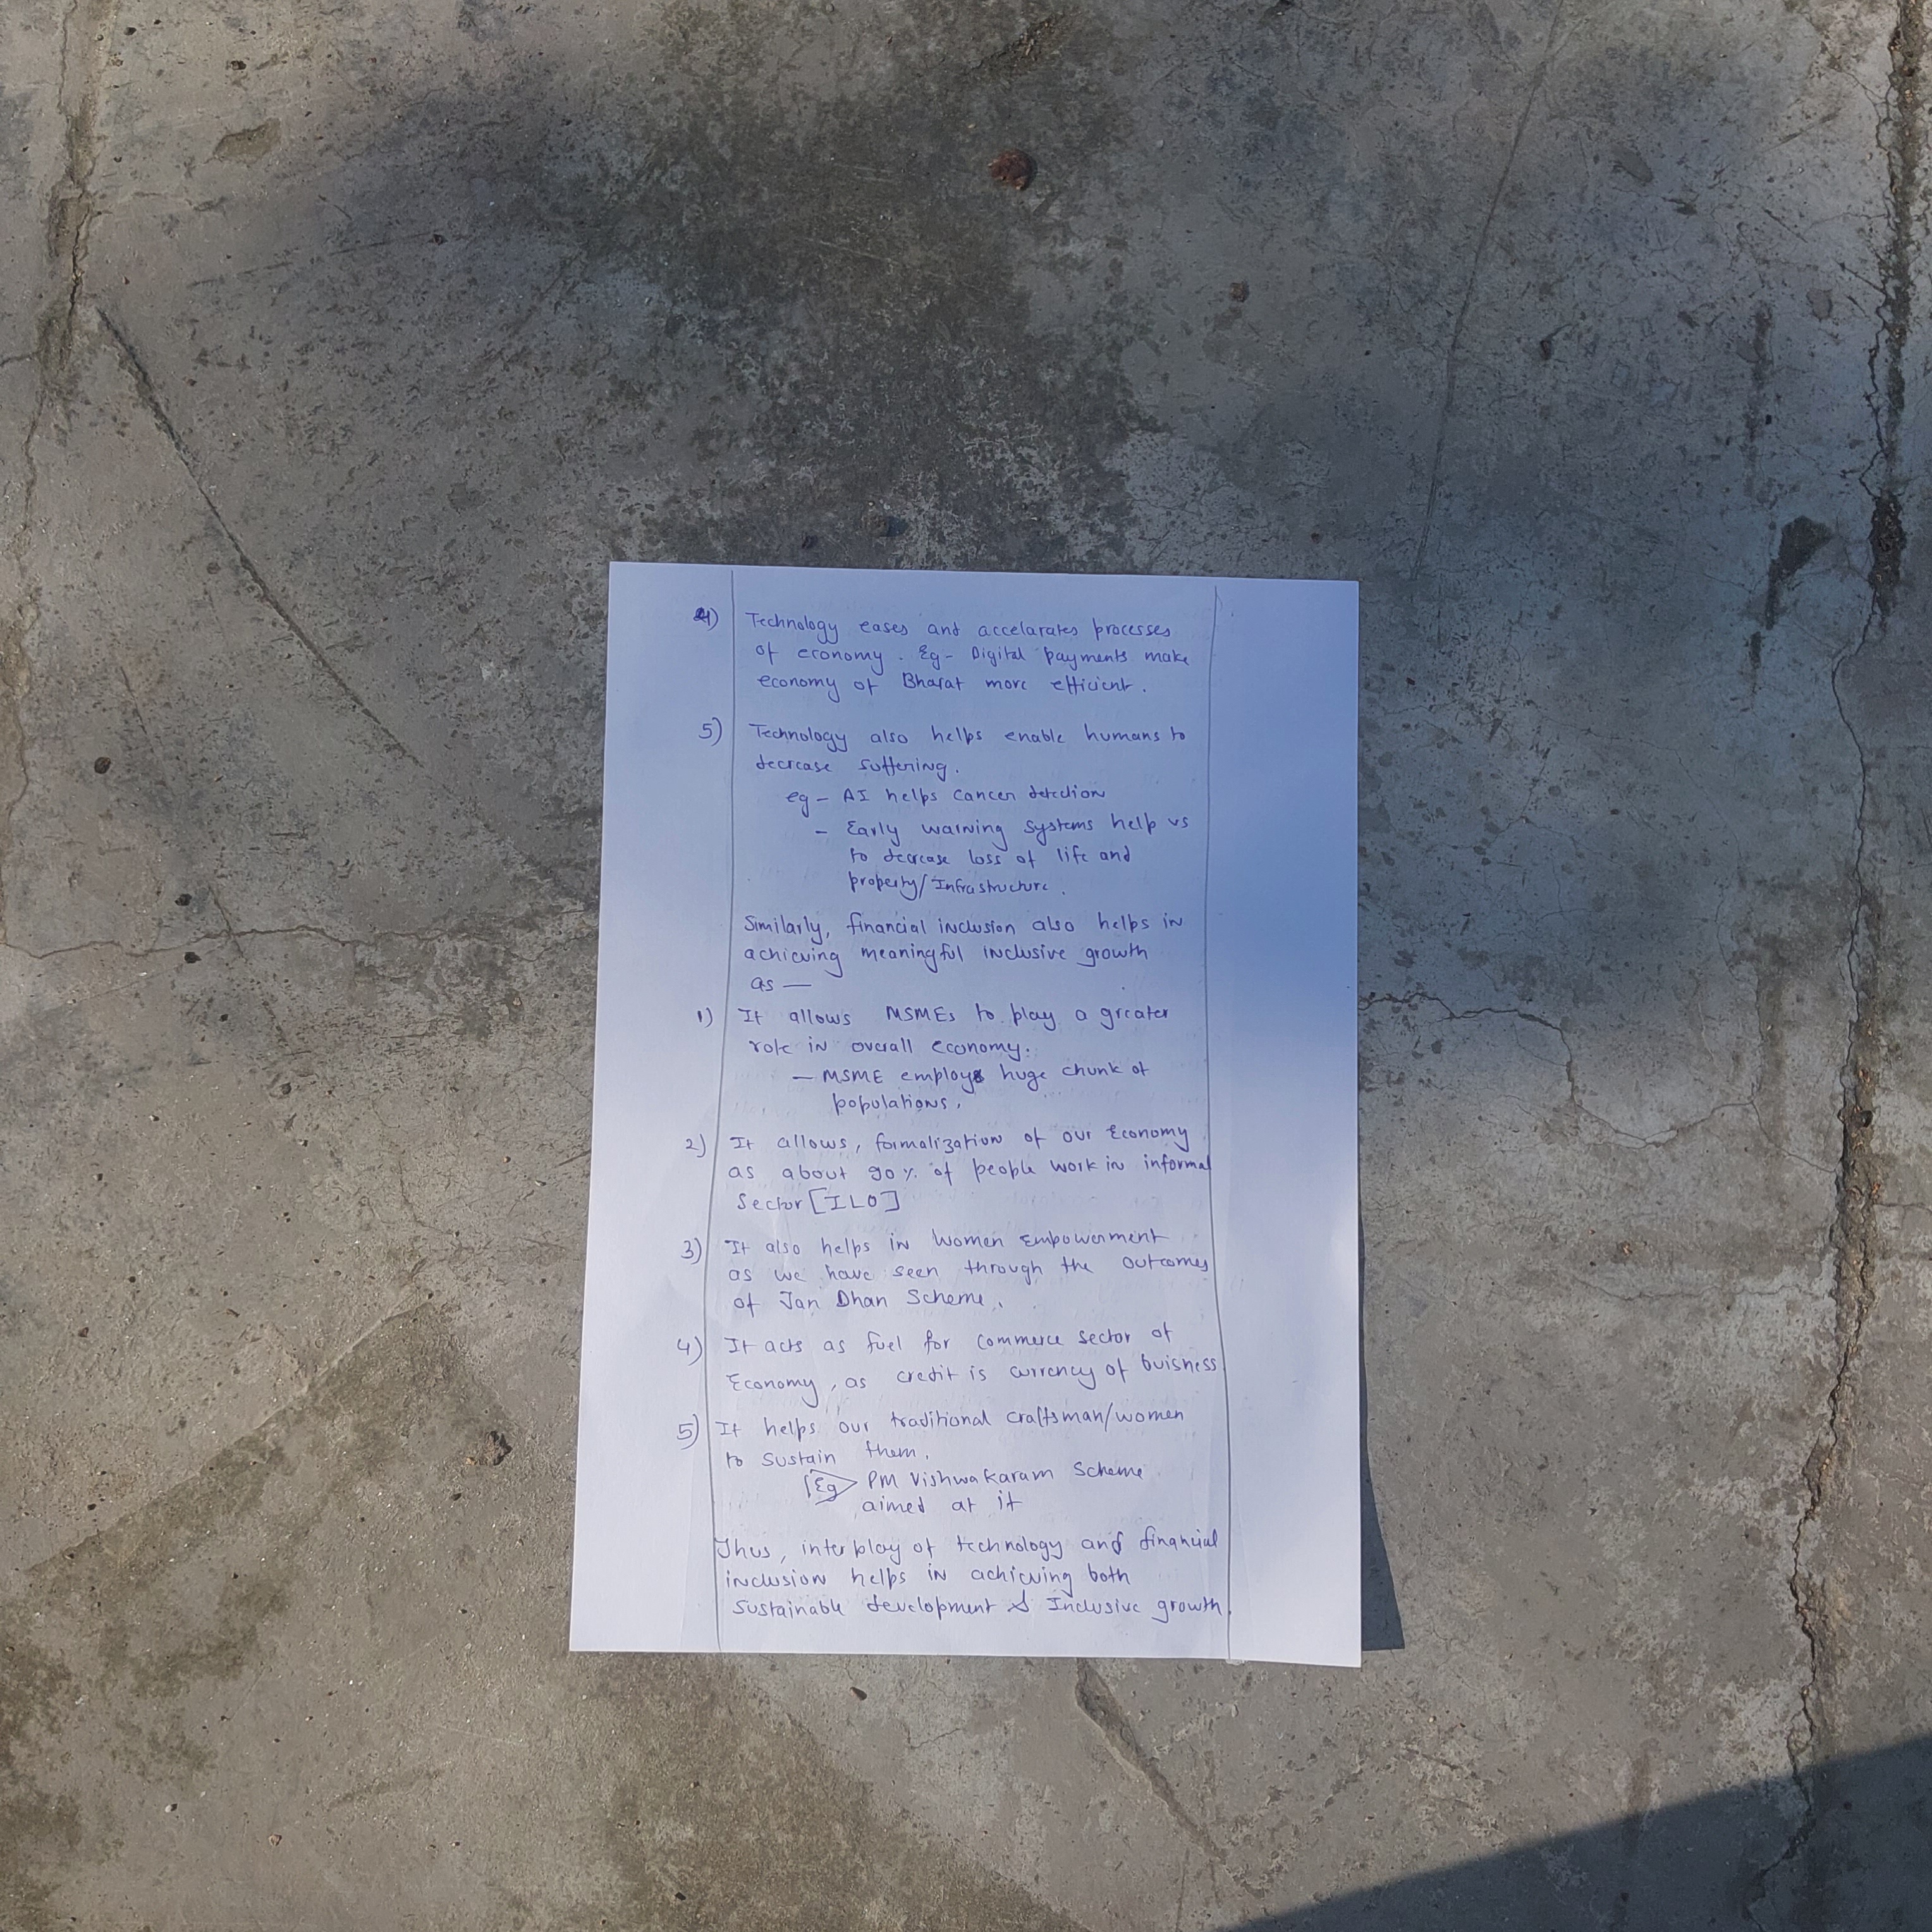 4) Technology eases and accelarates processes
of economy. Eg- Digital payments make
economy of Bharat more efficient.
5) Technology also helps enable humans to
decrease suffering.
eg - AI helps cancer detection
- Early warning systems help us
to decrease loss of life and
property/Infrastructure.
Similarly, financial inclusion also helps in
achieving meaningful inclusive growth
as —
1) It allows MSMEs to play a greater
role in overall economy.
— MSME employs huge chunk of
populations.
2) It allows, formalization of our Economy
as about 90% of people work in informal
Sector [ILO]
3) It also helps in Women Empowerment
as we have seen through the outcomes
of Jan Dhan Scheme.
4) It acts as fuel for commerce sector of
Economy, as credit is currency of buisness
5) It helps our traditional craftsman/women
to sustain them.
Eg PM Vishwakaram Scheme
aimed at it
Thus, interplay of technology and financial
inclusion helps in achieving both
sustainable development & Inclusive growth.